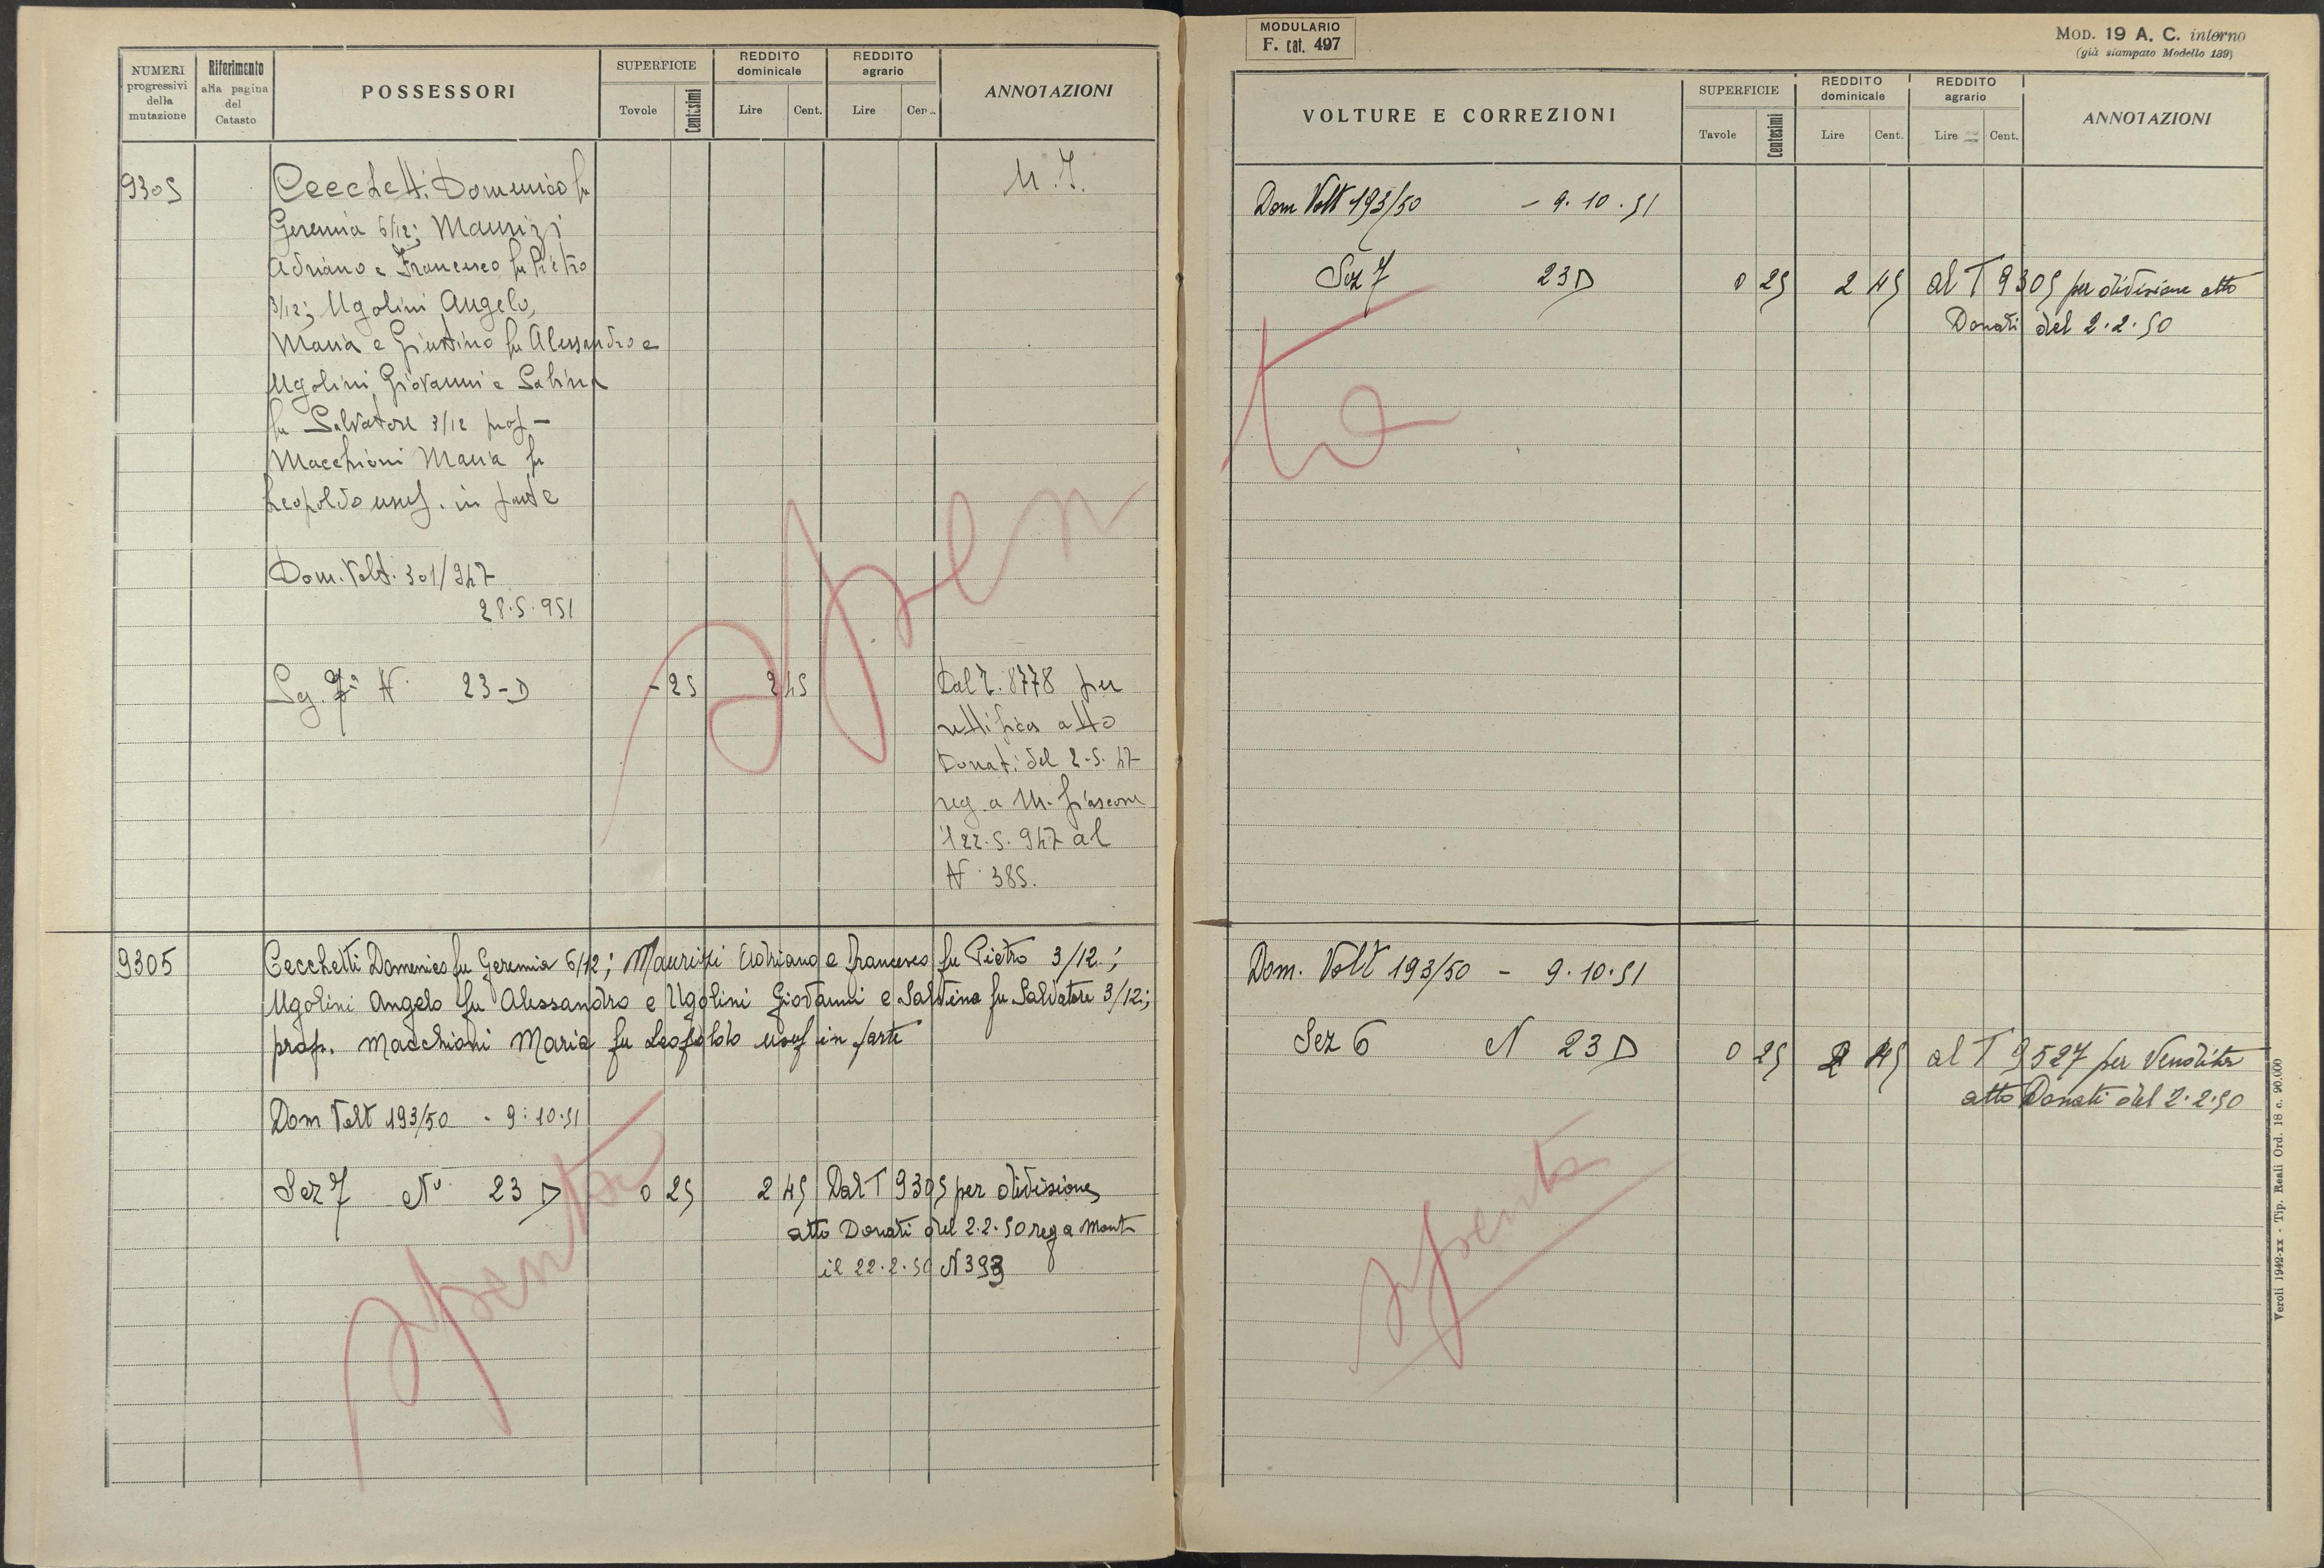 NUMERI progressivi della mutazione
Riferimento alla pagina del Catasto
POSSESSORI
SUPERFICIE
Tavole
Centesimi
REDDITO dominicale
Lire
Cent.
REDDITO agrario
Lire
Cen..
ANNOTAZIONI
9305
Cecchetti Domenico fu
Geremia 6/12; Maurizi
Adriano e Francesco fu Pietro
3/12; Ugolini Angelo,
Maria e Giustino fu Alessandro e
Ugolini Giovanni e Sabina
fu Salvatore 3/12 prop-
Macchioni Maria fu
Leopoldo usuf. in parte
M. F.
Dom. Volt. 301/947
28.5.951
Sg. 7ª N. 23-D
- 25
2 45
Dal T. 8778 per
rettifica atto
Donati del 2.5.47
reg. a M. fiascone
il 22.5.947 al
N. 385.
spen
9305
Cecchetti Domenico fu Geremia 6/12; Maurizi Adriano e Francesco fu Pietro 3/12;
Ugolini Angelo fu Alessandro e Ugolini Giovanni e Sabina fu Salvatore 3/12;
prop. Macchioni Maria fu Leopoldo usuf in parte
Dom Volt 193/50 - 9.10.51
Sez 7 N° 23 D 0 25 2 45 Dal T 9305 per divisione
atto Donati del 2.2.50 reg a Mont
il 22.2.50 N 393
spenta
MODULARIO
F. cat. 497
MOD. 19 A. C. interno
(già stampato Modello 139)
VOLTURE E CORREZIONI
SUPERFICIE
Tavole
Centesimi
REDDITO dominicale
Lire
Cent.
REDDITO agrario
Lire
Cent.
ANNOTAZIONI
Dom Volt 193/50 - 9.10.51
Sez 7 23 D 0 25 2 45 al T 9305 per divisione atto
Donati del 2.2.50
ta
Dom. Volt 193/50 - 9.10.51
Sez 6 N 23 D 0 25 2 45 al T 9527 per Vendita
atto Donati del 2.2.50
spenta
Veroli 1942-xx - Tip. Reali Ord. 18 c. 90.000